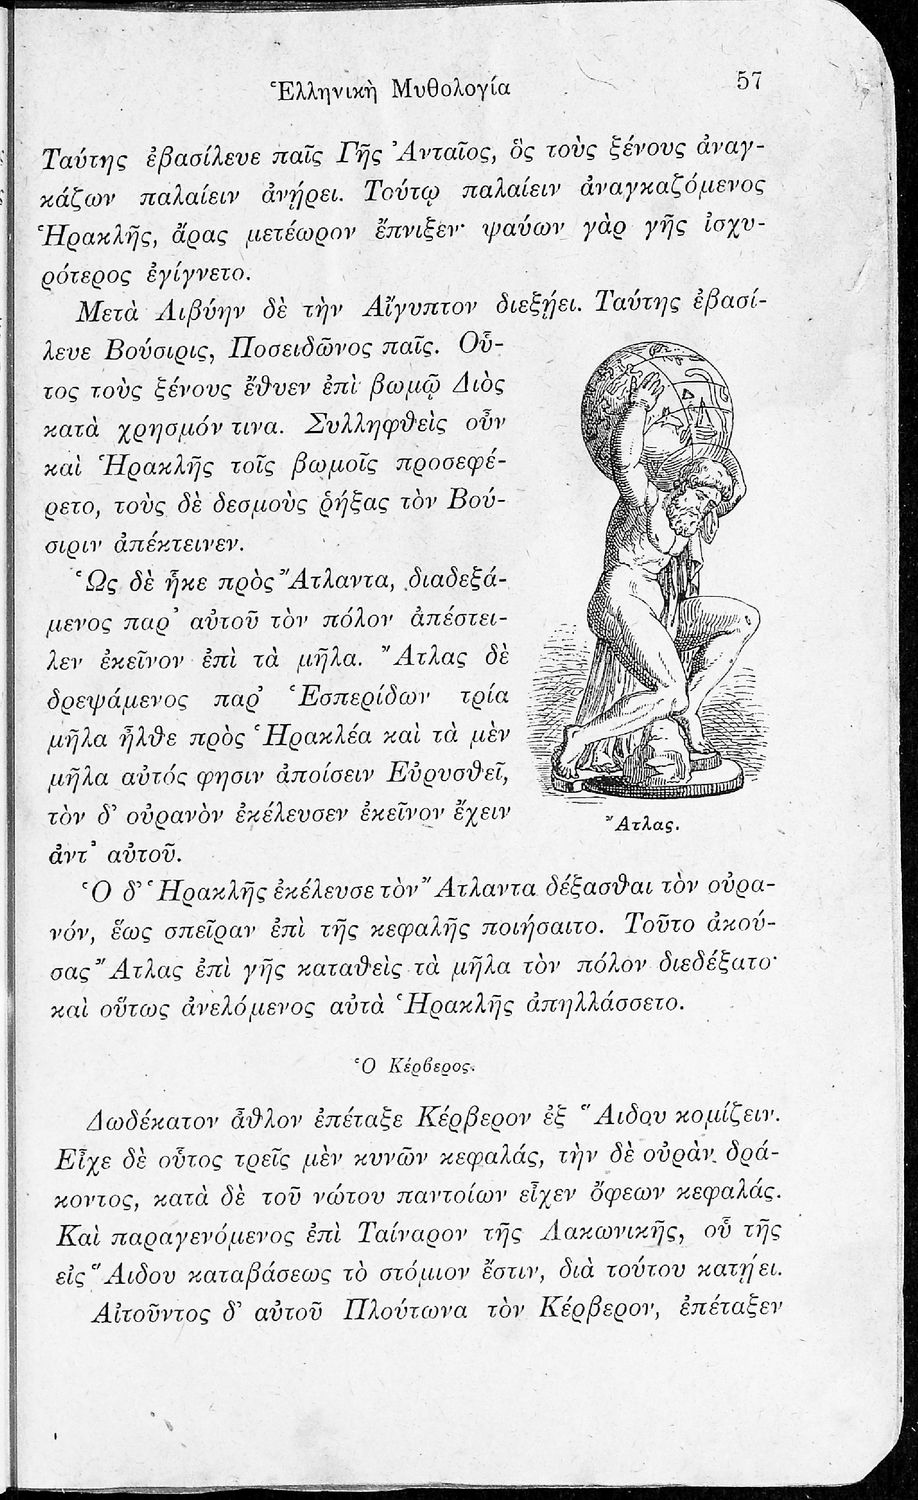 Ἑλληνικὴ Μυθολογία 57
Ταύτης ἐβασίλευε παῖς Γῆς Ἀνταῖος, ὃς τοὺς ξένους ἀναγ-
κάζων παλαίειν ἀνῄρει. Τούτῳ παλαίειν ἀναγκαζόμενος
Ἡρακλῆς, ἄρας μετέωρον ἔπνιξεν· ψαύων γὰρ γῆς ἰσχυ-
ρότερος ἐγίγνετο.
Μετὰ Λιβύην δὲ τὴν Αἴγυπτον διεξῄει. Ταύτης ἐβασί-
λευε Βούσιρις, Ποσειδῶνος παῖς. Οὗ-
τος τοὺς ξένους ἔθυεν ἐπὶ βωμῷ Διὸς
κατὰ χρησμόν τινα. Συλληφθεὶς οὖν
καὶ Ἡρακλῆς τοῖς βωμοῖς προσεφέ-
ρετο, τοὺς δὲ δεσμοὺς ῥήξας τὸν Βού-
σιριν ἀπέκτεινεν.
Ὡς δὲ ἧκε πρὸς Ἄτλαντα, διαδεξά-
μενος παρ’ αὐτοῦ τὸν πόλον ἀπέστει-
λεν ἐκεῖνον ἐπὶ τὰ μῆλα. Ἄτλας δὲ
δρεψάμενος παρ’ Ἑσπερίδων τρία
μῆλα ἦλθε πρὸς Ἡρακλέα καὶ τὰ μὲν
μῆλα αὐτός φησιν ἀποίσειν Εὐρυσθεῖ,
τὸν δ’ οὐρανὸν ἐκέλευσεν ἐκεῖνον ἔχειν
ἀντ’ αὐτοῦ.
Ἄτλας.
Ὁ δ’ Ἡρακλῆς ἐκέλευσε τὸν Ἄτλαντα δέξασθαι τὸν οὐρα-
νόν, ἕως σπεῖραν ἐπὶ τῆς κεφαλῆς ποιήσαιτο. Τοῦτο ἀκού-
σας Ἄτλας ἐπὶ γῆς καταθεὶς τὰ μῆλα τὸν πόλον διεδέξατο·
καὶ οὕτως ἀνελόμενος αὐτὰ Ἡρακλῆς ἀπηλλάσσετο.
Ὁ Κέρβερος.
Δωδέκατον ἆθλον ἐπέταξε Κέρβερον ἐξ Ἅιδου κομίζειν.
Εἶχε δὲ οὗτος τρεῖς μὲν κυνῶν κεφαλάς, τὴν δὲ οὐρὰν δρά-
κοντος, κατὰ δὲ τοῦ νώτου παντοίων εἶχεν ὄφεων κεφαλάς.
Καὶ παραγενόμενος ἐπὶ Ταίναρον τῆς Λακωνικῆς, οὗ τῆς
εἰς Ἅιδου καταβάσεως τὸ στόμιον ἔστιν, διὰ τούτου κατῄει.
Αἰτοῦντος δ’ αὐτοῦ Πλούτωνα τὸν Κέρβερον, ἐπέταξεν